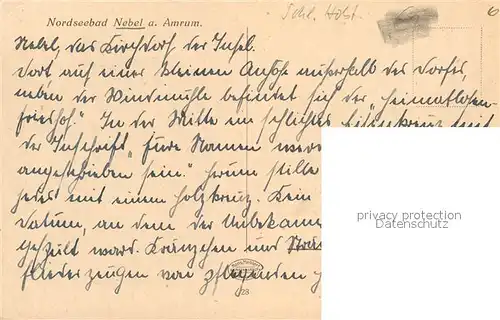 Nordseebad Nebel a. Amrum.
Schl. Holst.
6
Nebel, das Kirchdorf der Insel.
Dort auf einer kleinen Anhöhe außerhalb des Dorfes,
neben der Windmühle befindet sich der „Heimatlosen-
friedhof." In der Mitte ein schlichtes mit
der Inschrift „Eure Namen
angeschrieben sein." herum stille
jedes mit einem Holzkreuz. Kein
Datum, an dem der Unbekan
gespült ward. Kränzchen und
Flieder zeugen von pflegenden
privacy protection
Datenschutz
28